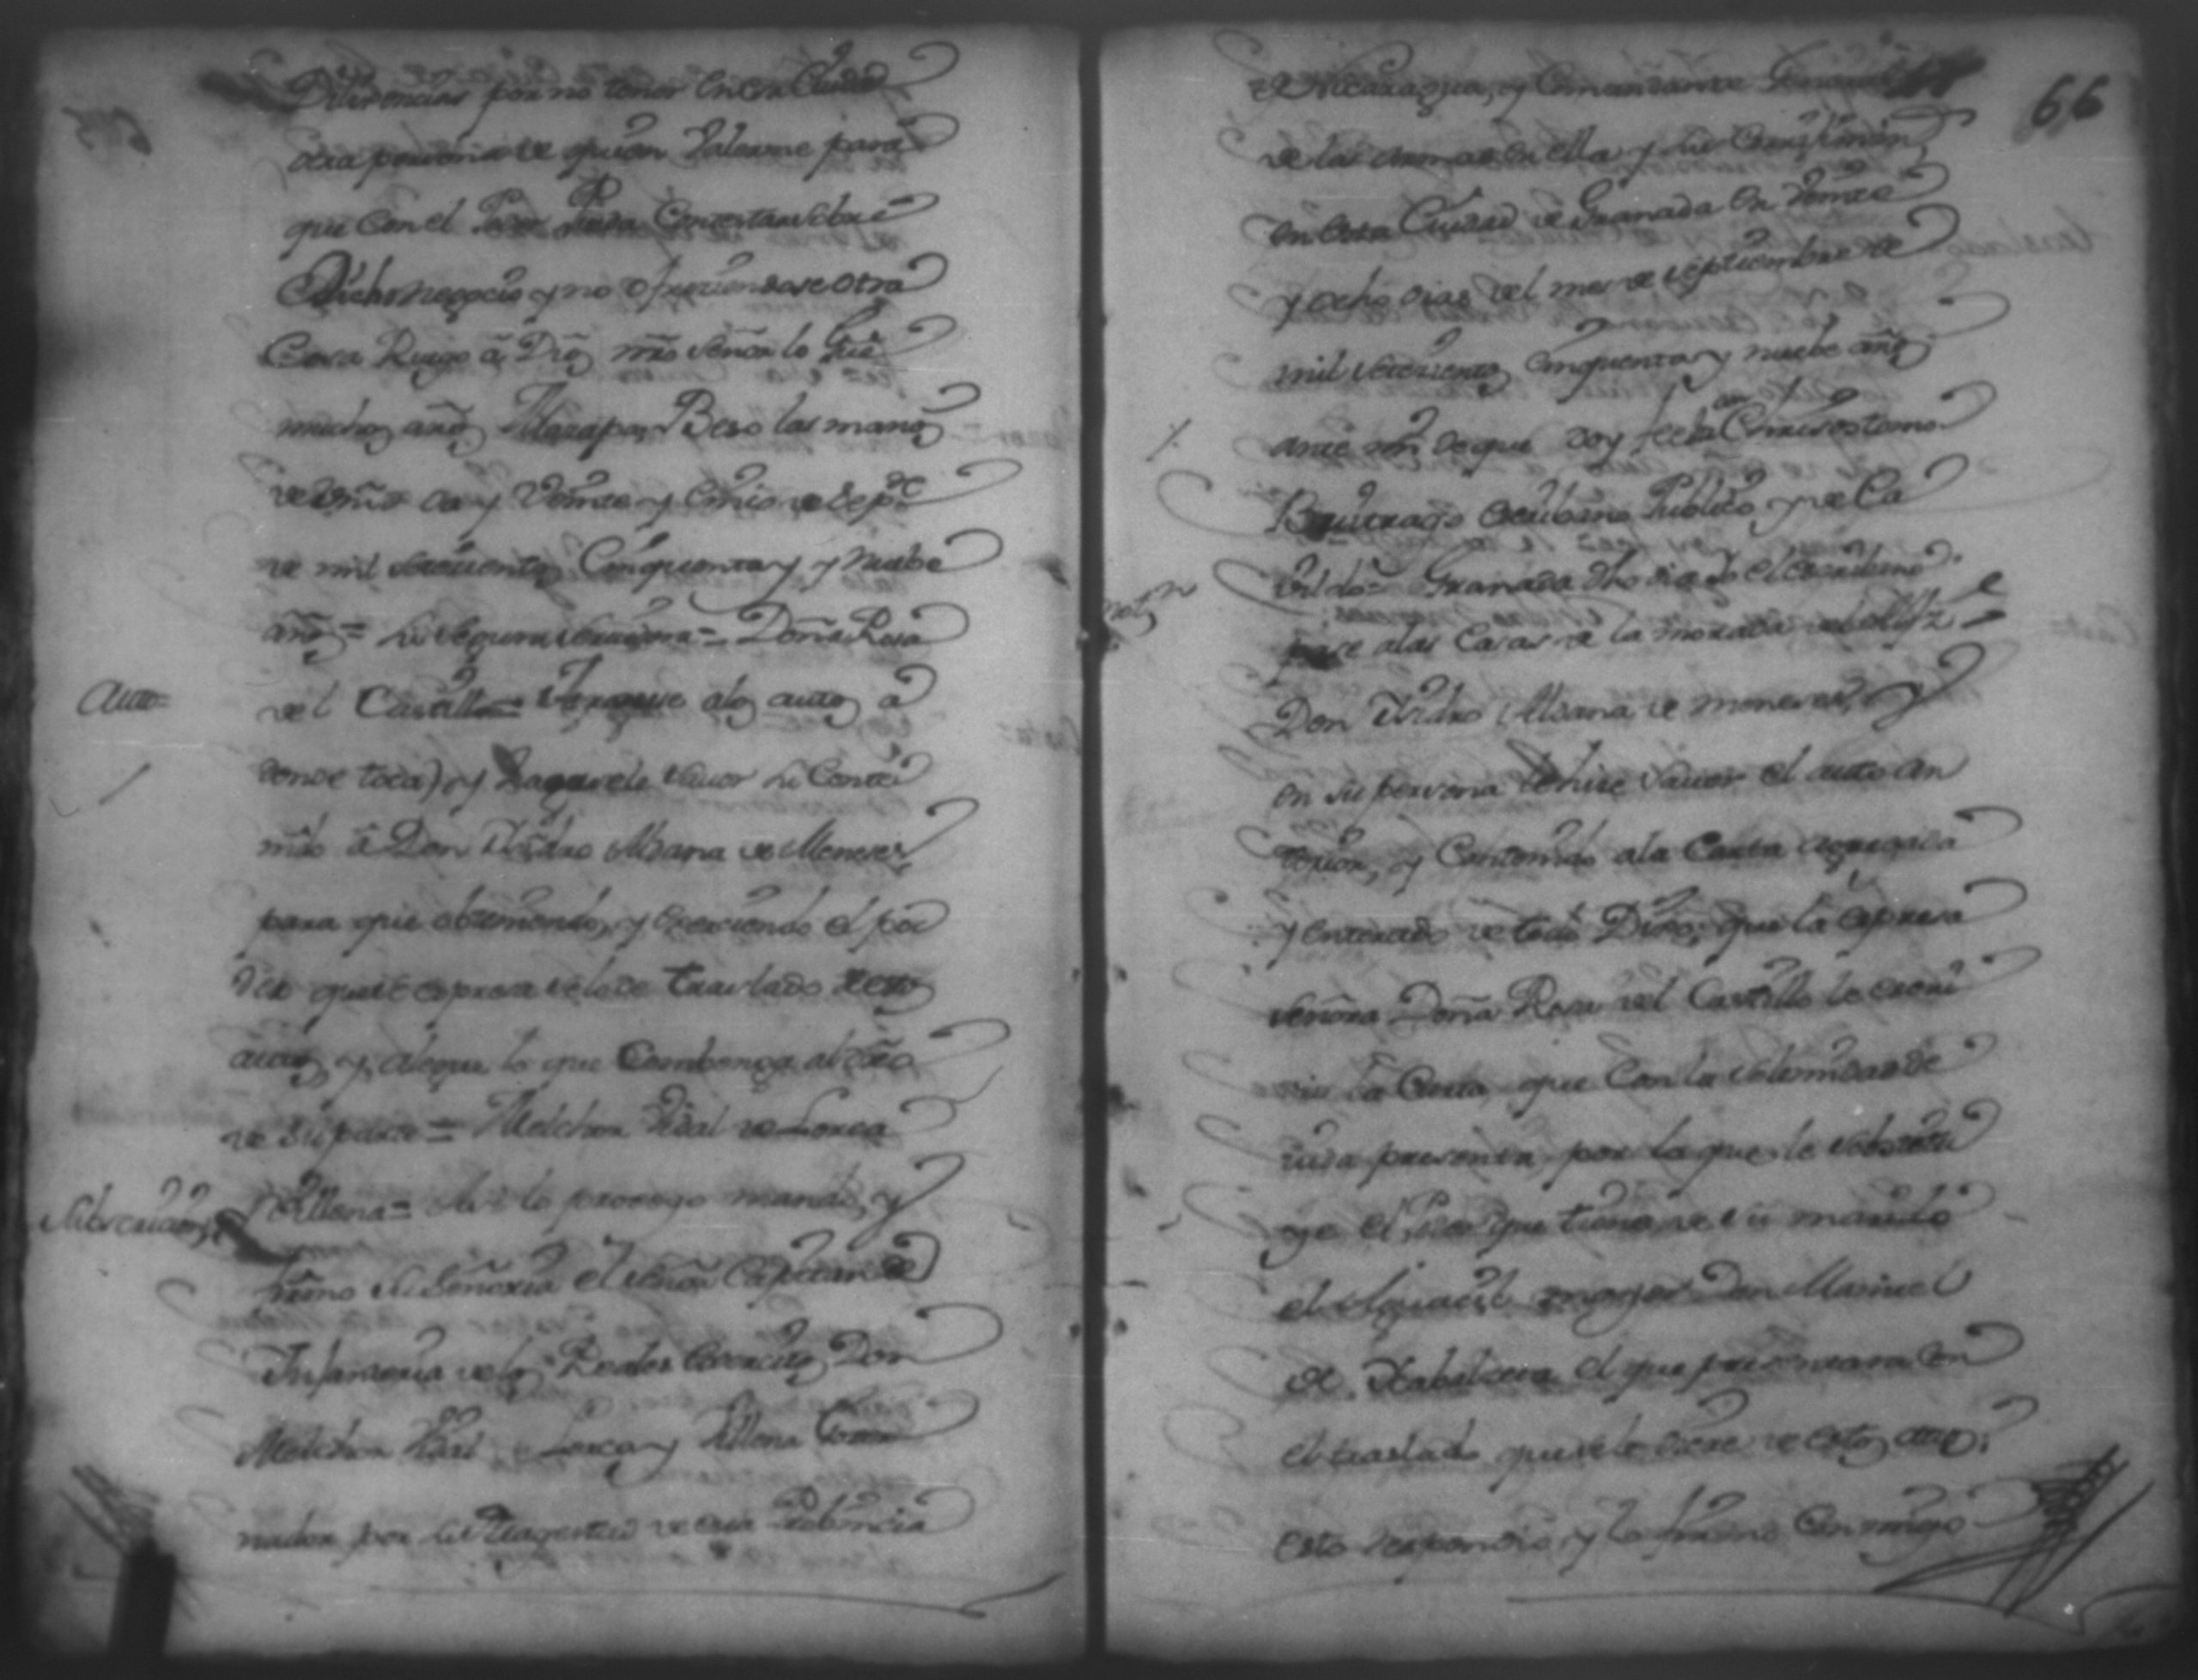 Diligencias por no tener en esa Ciudad
otra persona de quien Valerme para
que con el Poder pueda Contestar sobre
dicho negocio y no ofreciendose otra
Cosa Ruego â Dios mio Señor le Gue
muchos años Masaya Beso las manos
de Vmd oy Veinte y Cinco de Sepe
de mil setecientos Cinquenta y nuebe
años = su segura servidora = Doña Rosa
Auto=
del Castillo = Agreguese a los autos â
donde toca) y hagasele saver su Conte
nido â Don Isidro Aldana de Meneses
para que obteniendo, y exerciendo el po
der que se expresa se le de traslado de estos
autos y alegue lo que Combenga al dro
de su parte = Melchor Vidal de Lorca
y Villena = Asi lo proveyo mando, y
firmo su Señoria el señor Capitan de
Infanteria de los Reales Exercitos Don
Melchor Vidal de Lorca y Villena Gover
nador por su Magestad de esta Probincia
66
de Nicaragua, y Comandante General
de las armas en ella y su
en esta Ciudad de Granada en Veinte
y ocho dias del mes de septiembre de
mil setecientos Cinquenta y nuebe años
ante mi de que doy fee Juan Chrisostomo
Buitrago escribano Publico y de Ca
vildo = Granada dho dia Yo el escribano
pase a las Casas de la morada del
Don Isidro Aldana de Meneses, y
en su persona le hise saver el auto an
terior, y Contenido a la Carta agregada
y enterado de todo Dixo: que la expresa
señora Doña Rosa del Castillo le escri
vio la Carta que Con la solemnidad de
vida presenta por la que le substitu
ye el Poder que tiene de su marido
el Alguacil mayor Don Manuel
el que presentara con
el traslado que se le diere de estos autos:
esto respondio, y lo firmo Conmigo